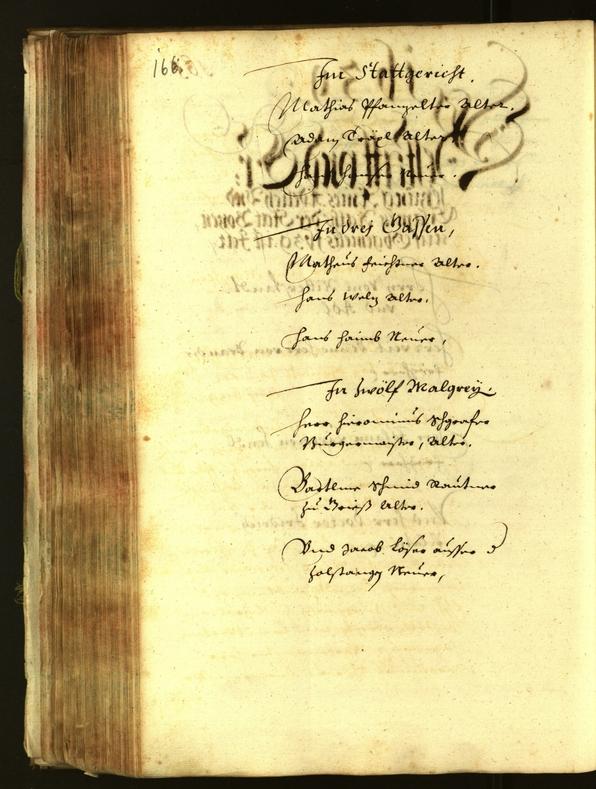 166.
Im Stattgericht.
Mathias Pfangelter Alter.
Adam Tröpl Alter
Hans Neuer.
In drej Gassen,
Matheus feichtner Alter.
Hans Welz Alter.
Hans haimb Neuer,
In Zwölf Malgrey.
Herr Hieronimus Schgrafer
Burgermaister, Alter.
Bartlme Schmid Rautner
zu Grieß Alter.
Vnd Jacob Löser ausser d
Zolstangen Neuer,